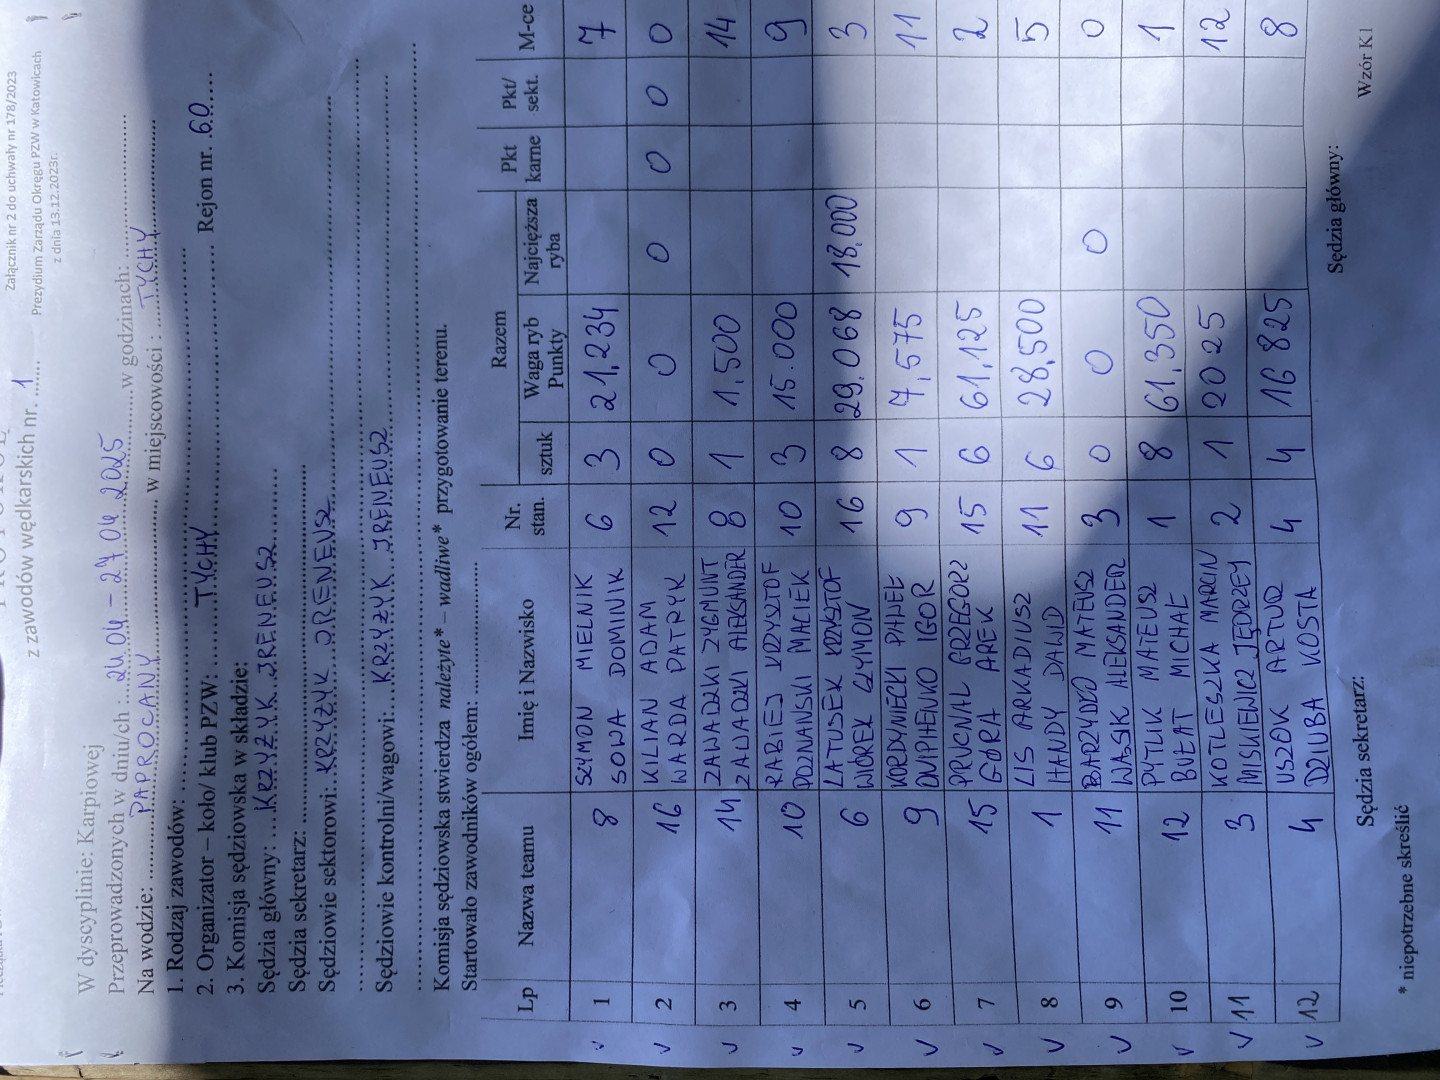 Załącznik nr 2 do uchwały nr 178/2023
Prezydium Zarządu Okręgu PZW w Katowicach
z dnia 13.12.2023r.
z zawodów wędkarskich nr. 1
W dyscyplinie: Karpiowej
Przeprowadzonych w dniu/ch : 24.04 – 27.04 2025 w godzinach:
Na wodzie: PAPROCANY w miejscowości : TYCHY
1. Rodzaj zawodów:
2. Organizator – koło/ klub PZW: TYCHY Rejon nr. 60
3. Komisja sędziowska w składzie:
Sędzia główny: KRZYŻYK IRENEUSZ
Sędzia sekretarz:
Sędziowie sektorowi: KRZYŻYK IRENEUSZ
Sędziowie kontrolni/wagowi: KRZYŻYK IRENEUSZ
Komisja sędziowska stwierdza należyte* – wadliwe* przygotowanie terenu.
Startowało zawodników ogółem:
Lp Nazwa teamu Imię i Nazwisko Nr. stan. Razem sztuk Waga ryb Punkty Najcięższa ryba Pkt karne Pkt/ sekt. M-ce
1 8 SZYMON MIELNIK 6 3 21,234 7
SOWA DOMINIK
2 16 KILIAN ADAM 12 0 0 0 0 0 0
WARDA PATRYK
3 14 ZAWADZKI ZYGMUNT 8 1 1,500 14
ZAWADZKI ALEKSANDER
4 10 RABIEJ KRZYSZTOF 10 3 15.000 9
POZNAŃSKI MACIEK
5 6 LATUSEK KRZYSZTOF 16 8 29.068 18,000 3
WIÓREK SZYMON
6 9 KORDYNIECKI PAWEŁ 9 1 7,575 11
ONIPHENKO IGOR
7 15 PRUCNAL GRZEGORZ 15 6 61,125 2
GÓRA AREK
8 1 LIS ARKADIUSZ 11 6 28,500 5
HANDY DAWID
9 11 BARZYDŁO MATEUSZ 3 0 0 0 0
WASIK ALEKSANDER
10 12 PYTLIK MATEUSZ 1 8 61,350 1
BUŁAT MICHAŁ
11 3 KOTLESZKA MARCIN 2 1 2025 12
MISKIEWICZ JĘDRZEJ
12 4 USZOK ARTUR 4 4 16 825 8
DZIUBA KOSTA
Sędzia sekretarz: Sędzia główny:
* niepotrzebne skreślić
Wzór K1